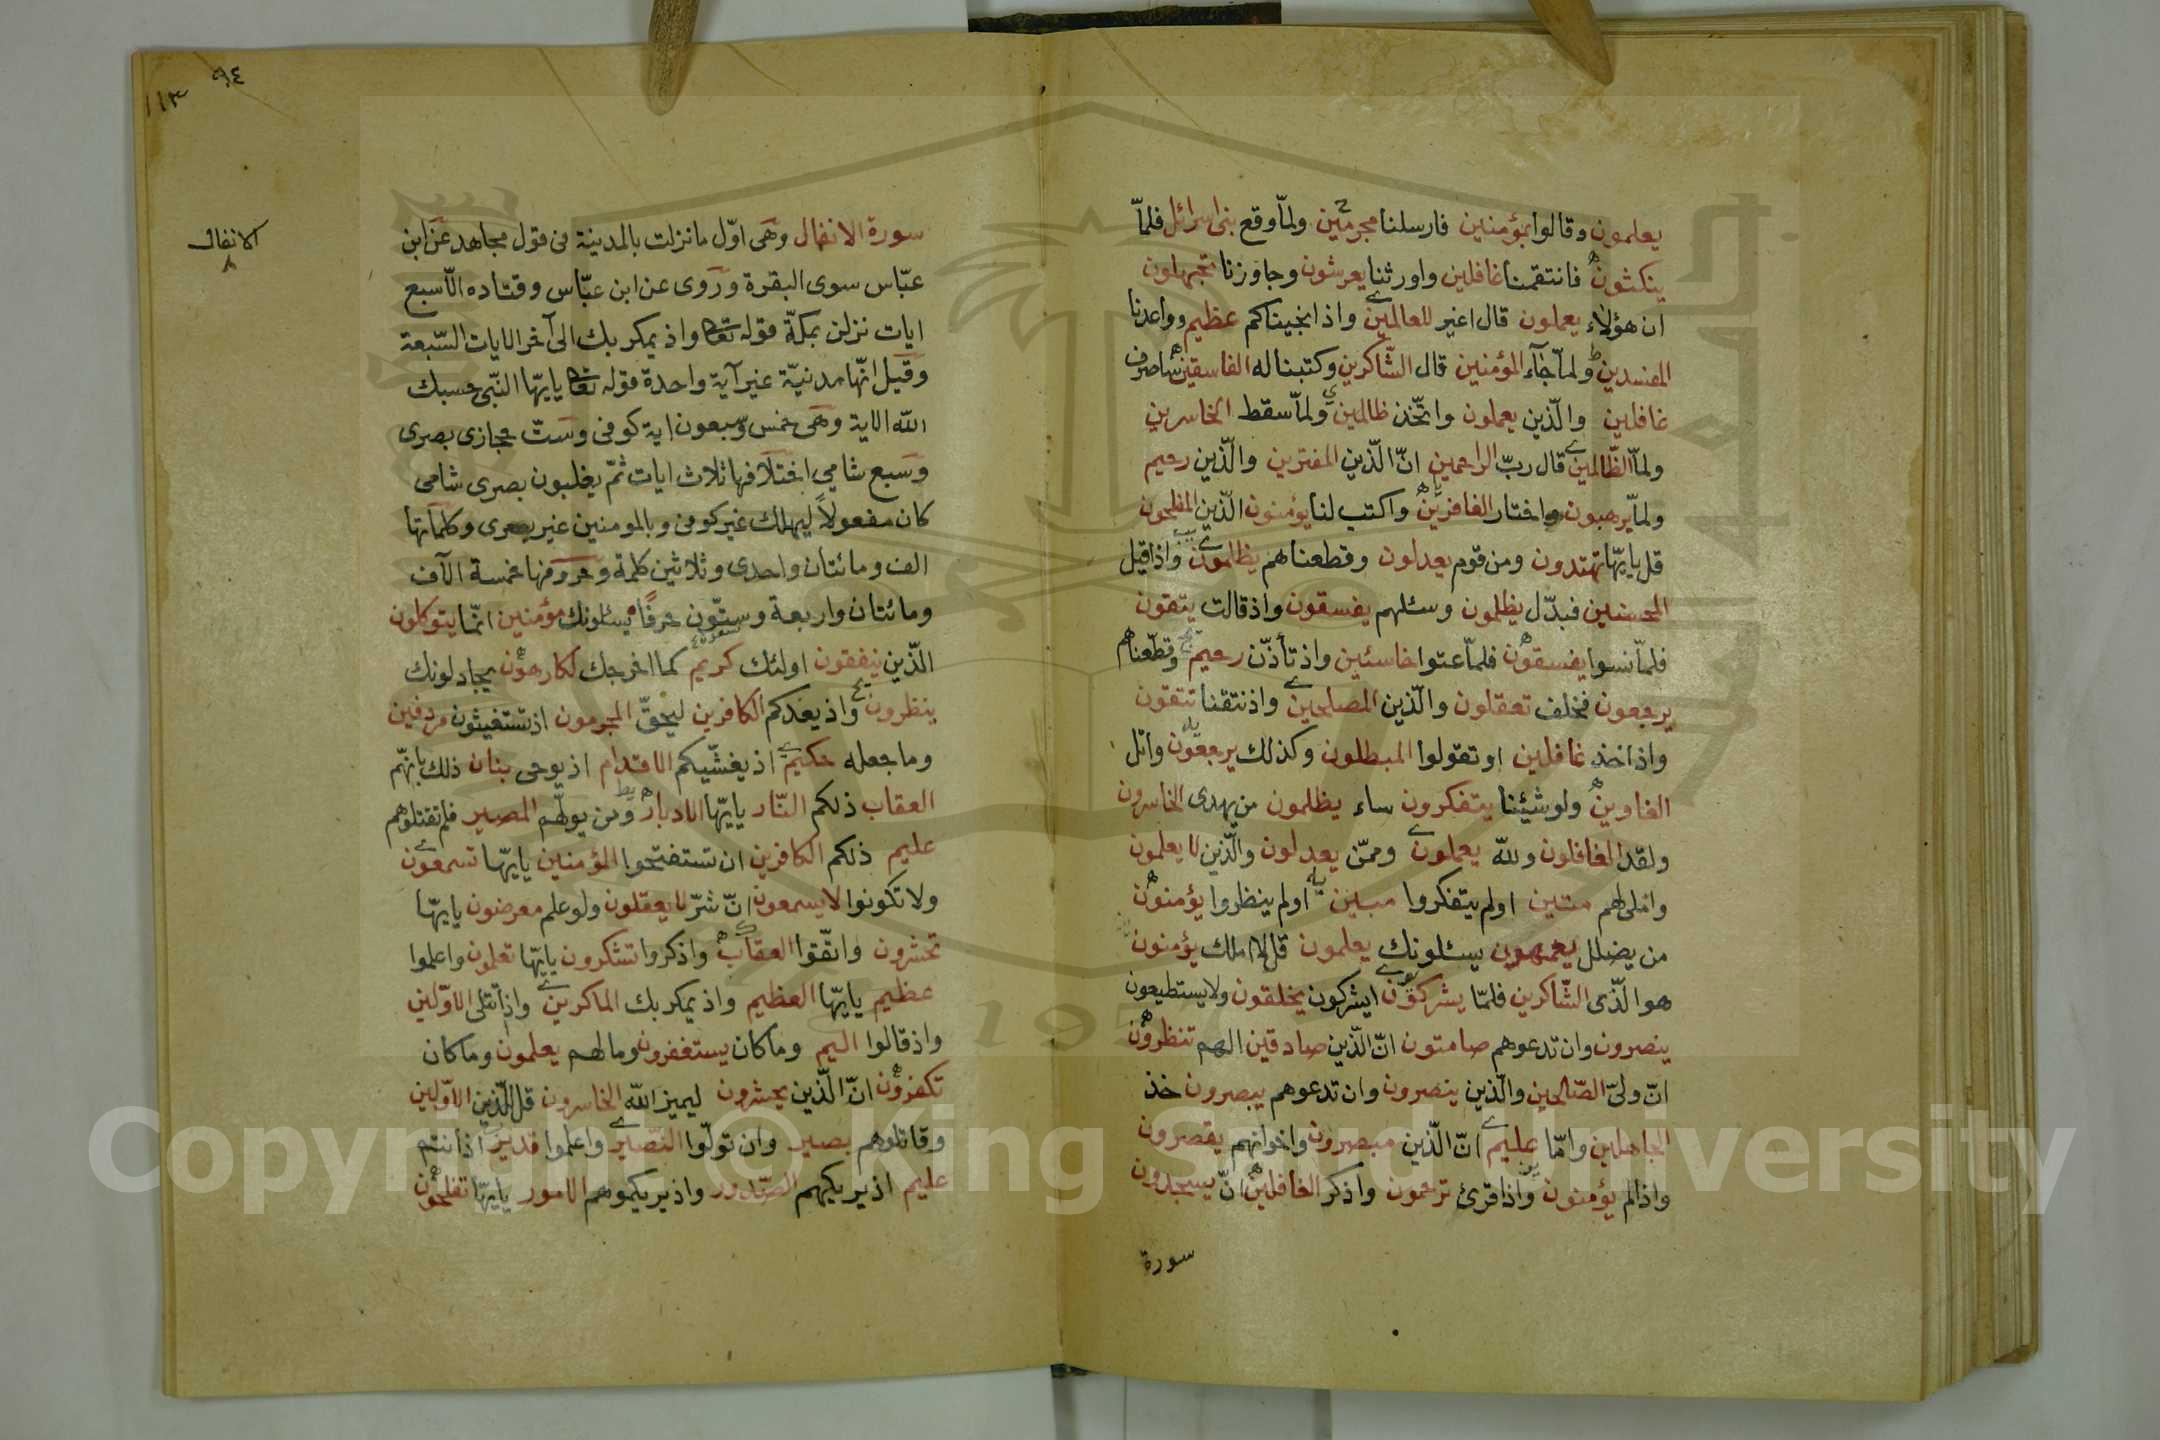 يعلمون وقالوا بمؤمنين فارسلنا مجرمين ولمّا وقع بنى اسرائل فلمّا
ينكثون فانتقمنا غافلين واورثنا يعرشون وجاوزنا تجهلون
ان هؤلاء يعملون قال اغير للعالمين واذ انجيناكم عظيم وواعدنا
المفسدين ولمّا جآء المؤمنين قال الشّاكرين وكتبنا له الفاسقين ساصرف
غافلين والّذين يعملون واتّخذ ظالمين ولمّا سقط الخاسرين
ولمّا الظّالمين قال ربّ الراحمين انّ الّذين المفترين والّذين رحيم
ولمّا يرهبون واختار الغافرين واكتب لنا يؤمنون الّذين المفلحون
قل يايّها تهتدون ومن قوم يعدلون وقطعناهم يظلمون واذ قيل
المحسنين فبدّل يظلمون وسئلهم يفسقون واذ قالت يتقون
فلمّا نسوا يفسقون فلمّا عتوا خاسئين واذ تأذّن رحيم وقطّعناهم
يرجعون فخلف تعقلون والّذين المصلحين واذ نتقنا تتقون
واذ اخذ غافلين او تقولوا المبطلون وكذلك يرجعون واتل
الغاوين ولو شيئنا يتفكرون ساء يظلمون من يهدى الخاسرون
ولقد الغافلون ولله يعملون وممّن يعدلون والّذين لا يعلمون
واملى لهم متين اولم يتفكروا مبين اولم ينظروا يؤمنون
من يضلل يعمهون يسئلونك يعلمون قل لا املك يؤمنون
هو الّذى الشّاكرين فلمّا يشركون ايشركون يخلقون ولا يستطيعون
ينصرون وان تدعوهم صامتون انّ الّذين صادقين الهم تنظرون
انّ ولىّ الصّالحين والّذين ينصرون وان تدعوهم يبصرون خذ
الجاهلين وامّا عليم انّ الّذين مبصرون واخوانهم يقصرون
واذا لم يؤمنون واذا قرئ ترحمون واذكر الغافلين انّ يسجدون
سورة
٩٤
١١٣
الانفال
٨
سورة الانفال وهى اوّل ما نزلت بالمدينة فى قول مجاهد عن ابن
عبّاس سوى البقرة وروى عن ابن عبّاس وقتاده الّا سبع
ايات نزلن بمكّة قوله تعا واذ يمكر بك الى آخر الايات السّبعة
وقيل انّها مدنيّة غير آية واحدة قوله تعا يايّها النّبى حسبك
الله الاية وهى خمس وسبعون اية كوفى وستّ حجازى بصرى
وسبع شامي اختلافها ثلاث ايات ثمّ يغلبون بصرى شامى
كان مفعولاً ليهلك غير كوفى وبالمومنين غير بصرى وكلماتها
الف ومائتان واحدى وثلاثين كلمة وحروفها خمسة الآف
ومائتان واربعة وستّون حرفًا يسئلونك مؤمنين انّما يتوكلون
الّذين ينفقون اولئك كريم كما اخرجك لكارهون يجادلونك
ينظرون واذ يعدكم الكافرين ليحقّ المجرمون اذ تستغيثون مردفين
وما جعله حكيم اذ يغشّيكم الاقدام اذ يوحى بنان ذلك بانهّم
العقاب ذلكم النّار يايّها الادبار ومن يولّهم المصير فلم تقتلوهم
عليم ذلكم الكافرين ان تستفتحوا المؤمنين يايّها تسمعون
ولا تكونوا لا يسمعون انّ شرّ لا يعقلون ولو علم معرضون يايهّا
تحشرون واتّقوا العقاب واذكروا تشكرون يايّها تعلمون واعلموا
عظيم يايّها العظيم واذ يمكر بك الماكرين واذا تتلى الاوّلين
واذ قالوا اليم وما كان يستغفرون وما لهم يعلمون وما كان
تكفرون انّ الّذين يحشرون ليميز الله الخاسرون قل للّذين الاوّلين
وقاتلوهم بصير وان تولّوا النّصير واعلموا قدير اذ انتم
عليم اذ يريكهم الصّدور واذ يريكموهم الامور يايّها تفلحون
Copyright © King Saud University
1957